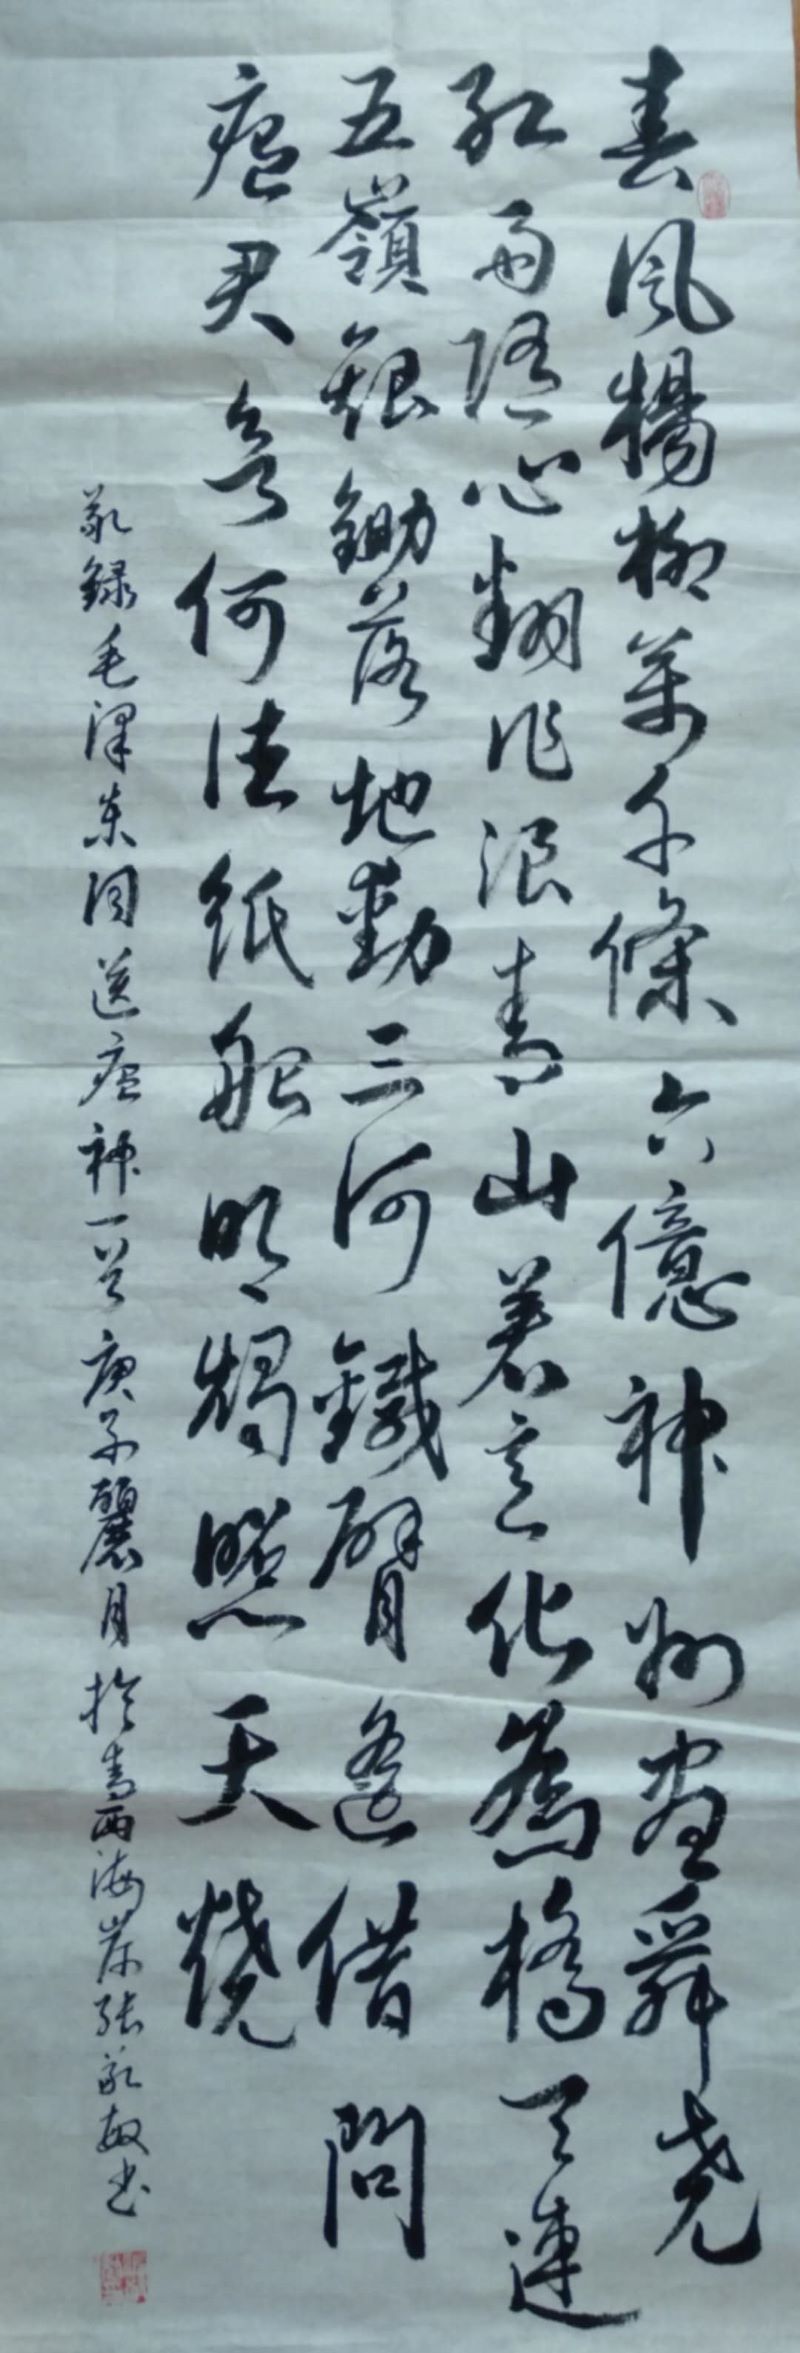 春風楊柳萬千條六億神州盡舜堯
紅雨隨心翻作浪青山着意化為橋天連
五嶺銀鋤落地動三河鐵臂遙借問
瘟君欲何往紙船明燭照天燒
敬録毛澤東詞送瘟神一首庚子麗月於青西海岸張敬敏书